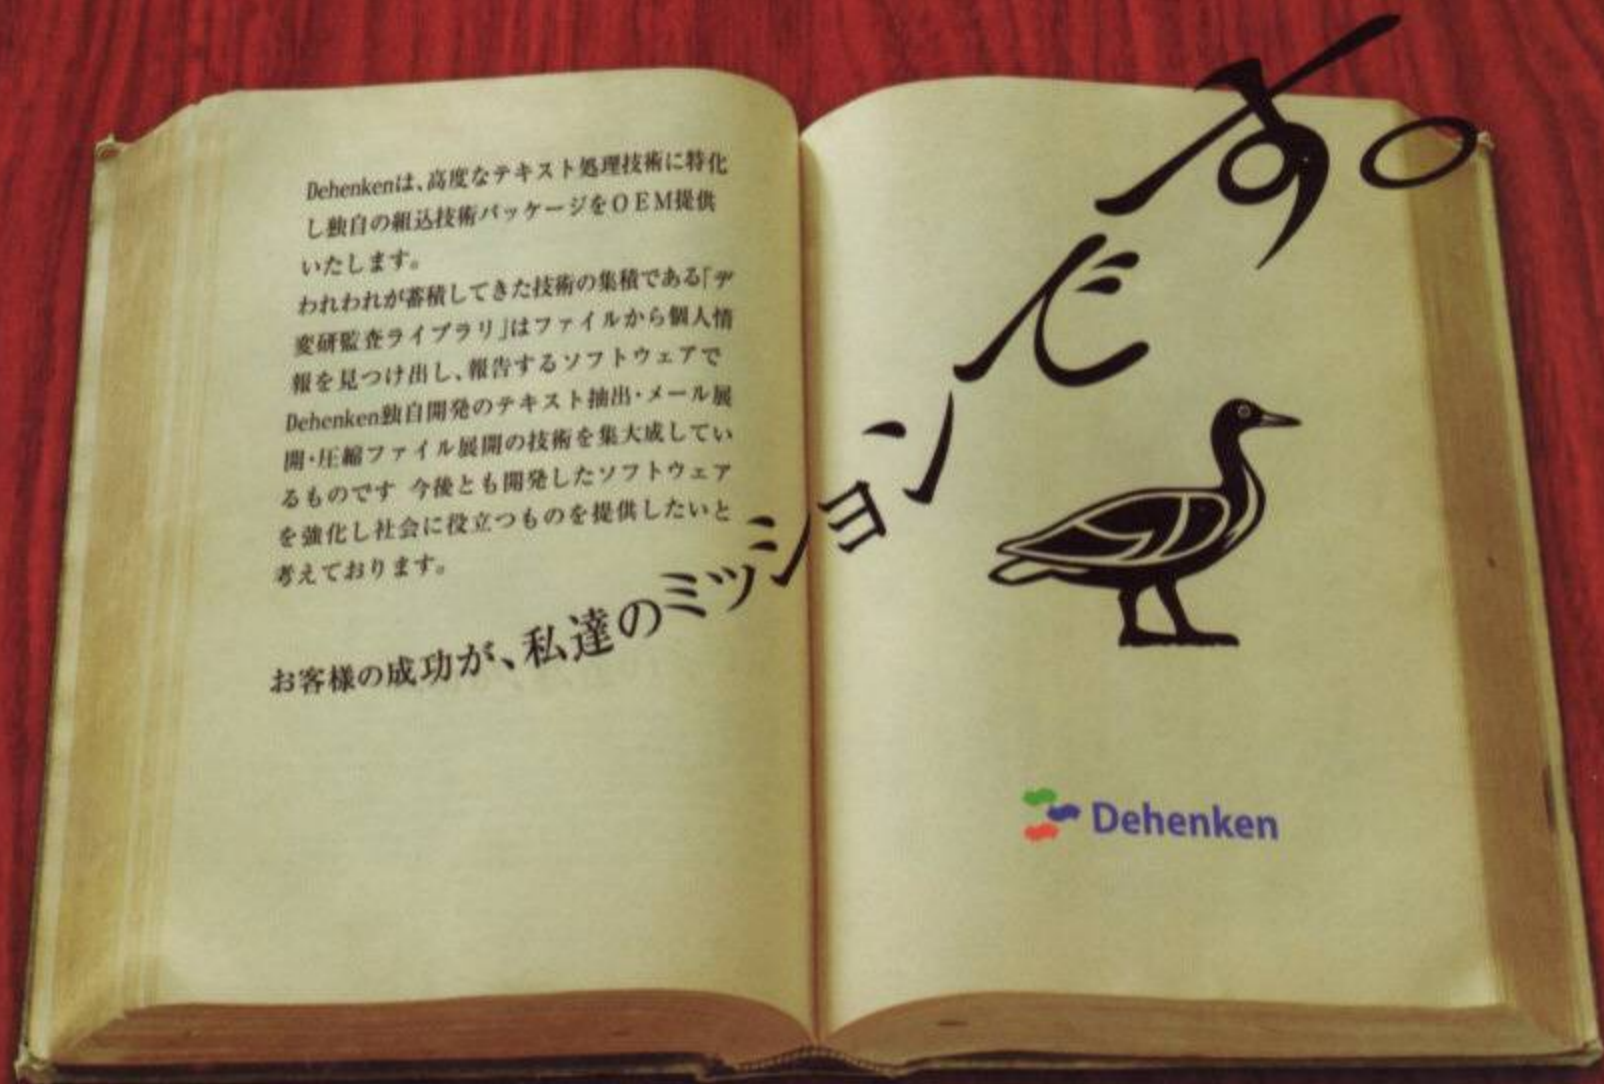 Dehenkenは、高度なテキスト処理技術に特化
し独自の組込技術パッケージをOEM提供
いたします。
われわれが蓄積してきた技術の集積である「デ
変研監査ライブラリ」はファイルから個人情
報を見つけ出し、報告するソフトウェアで
Dehenken独自開発のテキスト抽出・メール展
開・圧縮ファイル展開の技術を集大成してい
るものです 今後とも開発したソフトウェア
を強化し社会に役立つものを提供したいと
考えております。
お客様の成功が、私達のミッションです。
Dehenken